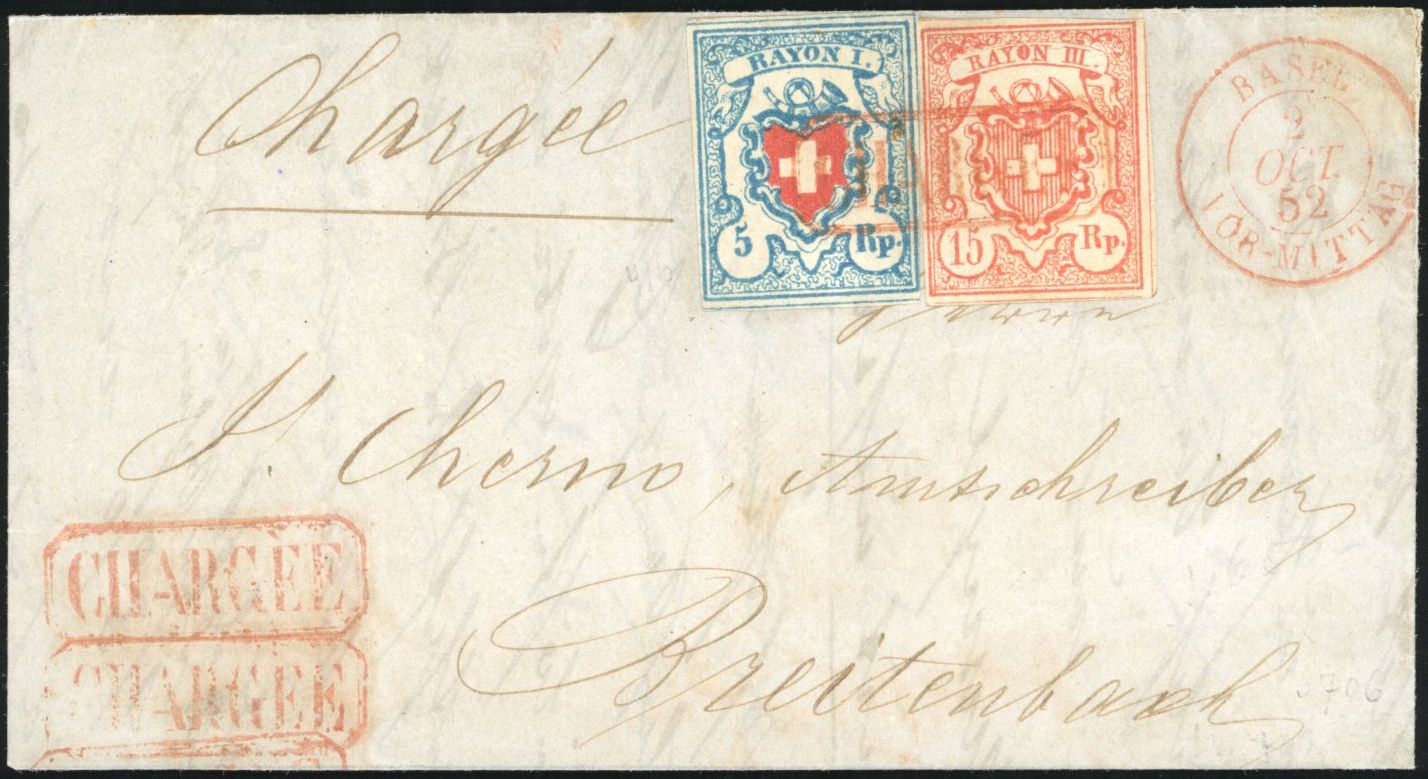 Chargée
RAYON I.
5 Rp.
RAYON III.
15 Rp.
PD
BASEL
2
OCT.
52
VOR-MITTAG
Herrn
Cherno, Amtschreiber
Breitenbach
CHARGÉE
CHARGÉE
3706